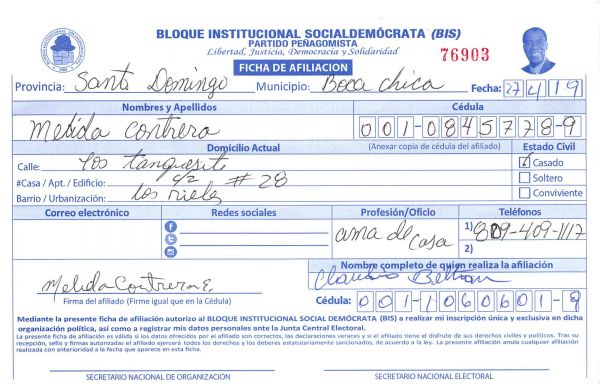 BLOQUE INSTITUCIONAL SOCIALDEMÓCRATA (BIS)
PARTIDO PEÑAGOMISTA
Libertad, Justicia, Democracia y Solidaridad
76903
FICHA DE AFILIACION
Provincia: Santo Domingo Municipio: Boca chica Fecha: 27 4 19
Nombres y Apellidos Cédula
Melida Contrera 001-0845778-9
Domicilio Actual (Anexar copia de cédula del afiliado) Estado Civil
Calle: los tanquesito Casado
#Casa / Apt. / Edificio: c/2 # 28 Soltero
Barrio / Urbanización: los rieles Conviviente
Correo electrónico Redes sociales Profesión/Oficio Teléfonos
ama de casa 1) 809-409-1117
2)
Nombre completo de quien realiza la afiliación
Melida Contrera E. Claudio Beltran
Firma del afiliado (Firme igual que en la Cédula) Cédula: 001-1060601-9
Mediante la presente ficha de afiliación autorizo al BLOQUE INSTITUCIONAL SOCIAL DEMÓCRATA (BIS) a realizar mi inscripción única y exclusiva en dicha
organización política, así como a registrar mis datos personales ante la Junta Central Electoral.
La presente ficha de afiliación es válida si los datos ofrecidos por el afiliado son correctos, las declaraciones veraces y si el afiliado tiene el disfrute de sus derechos civiles y políticos. Tras su
recepción, sello y firmas autorizadas el afiliado ejercerá todos los derechos y los deberes estatutariamente sancionados, de acuerdo a la ley. La presente afiliación anula cualquier afiliación
realizada con anterioridad a la fecha que aparece en esta ficha.
SECRETARIO NACIONAL DE ORGANIZACIÓN SECRETARIO NACIONAL ELECTORAL